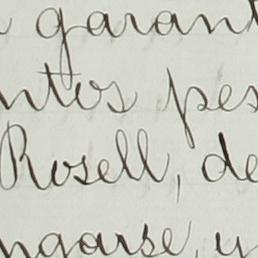 garant
ntos pes
Rosell, de
ngarse, y